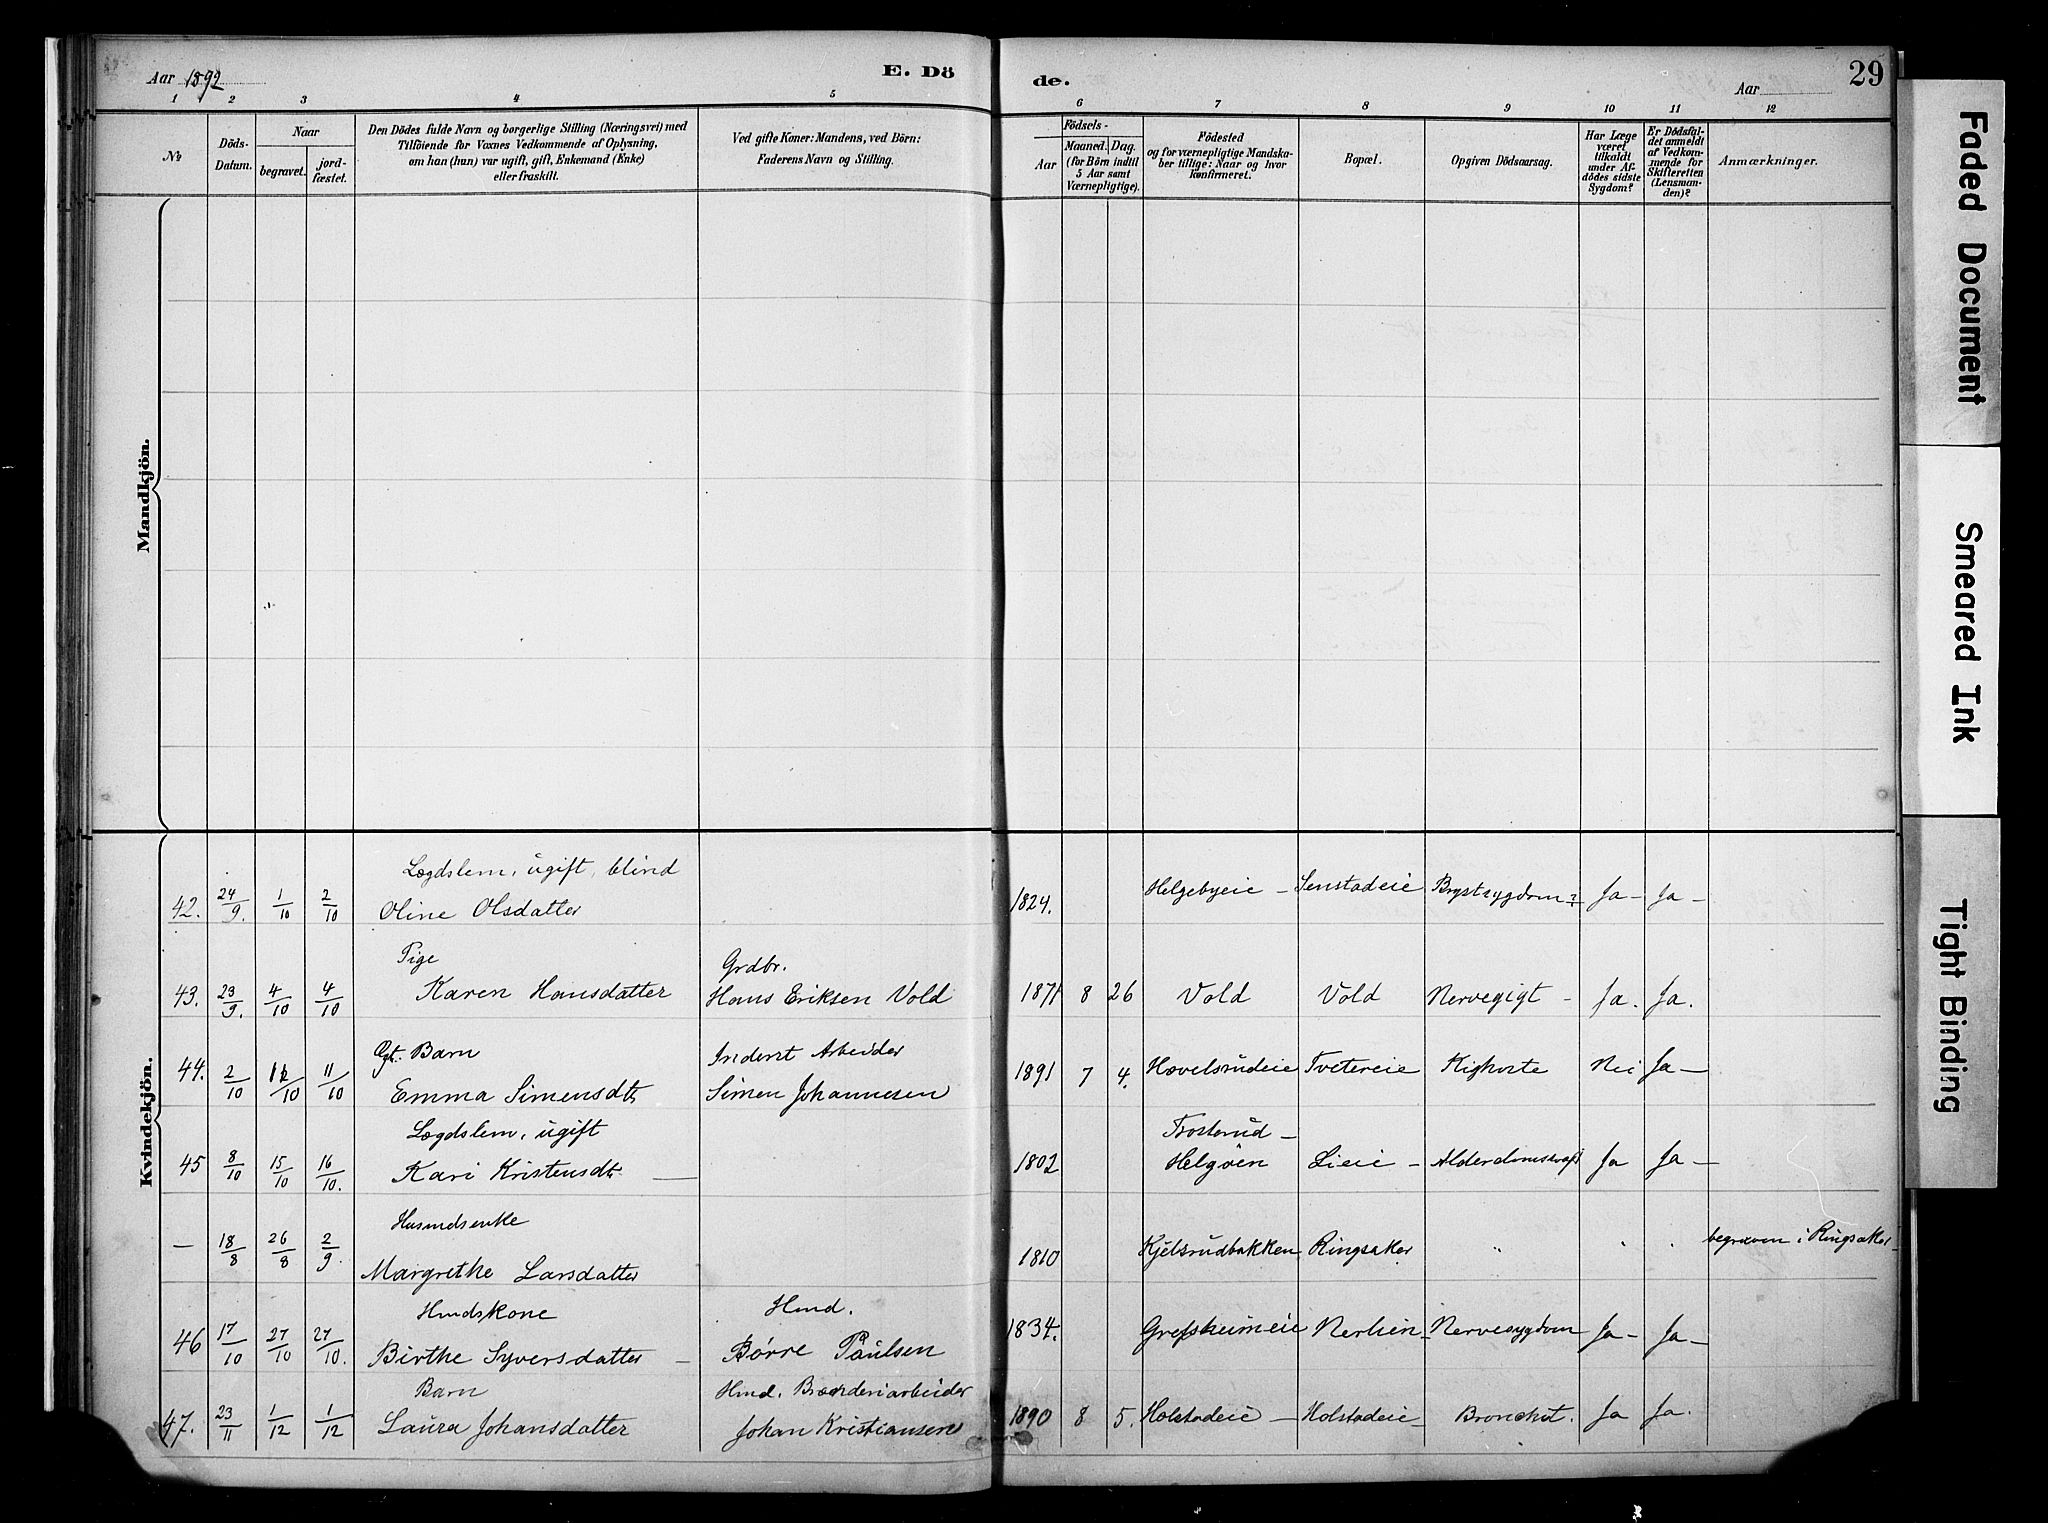 Aar 1892
E. Dö
de.
Aar
29
1 2 3 4 5 6 7 8 9 10 11 12
№
Döds-
Datum.
Naar
begravet.
jord-
fæstet.
Den Dödes fulde Navn og borgerlige Stilling (Næringsvei) med
Tilföiende for Voxnes Vedkommende af Oplysning,
om han (hun) var ugift, gift, Enkemand (Enke)
eller fraskilt.
Ved gifte Koner: Mandens, ved Börn:
Faderens Navn og Stilling.
Födsels-
Aar
Maaned. Dag.
(for Börn indtil
5 Aar samt
Værnepligtige).
Födested
og for værnepligtige Mandska-
ber tillige: Naar og hvor
konfirmeret.
Bopæl.
Opgiven Dödsaarsag.
Har Læge
været
tilkaldt
under Af-
dödes sidste
Sygdom?
Er Dödsfal-
det anmeldt
af Vedkom-
mende for
Skifteretten
(Lensman-
den)?
Anmærkninger.
Mandkjön.
Kvindekjön.
Lægdslem, ugift, blind
42. 24/9. 1/10 2/10 Oline Olsdatter 1824. Helgebyeie - Senstadeie Brystsygdom? Ja - Ja -
Pige Grdbr.
43. 23/9. 4/10 4/10 Karen Hansdatter Hans Eriksen Vold 1871 8 26 Vold Vold Nervegigt - Ja. Ja.
Ægt. Barn Inderst Arbeider
44. 2/10 11/10 11/10 Emma Simensdt. Simen Johannesen 1891 7 4. Hovelsrudeie Tvetereie Kighoste Nei Ja -
Lægdslem, ugift
45 8/10 15/10 16/10. Kari Kristensdt. — 1802 Frosterud - Helgöen Lieie - Alderdomssvagh Ja Ja -
Husmdsenke
— 18/8 26/8 2/9. Margrethe Larsdatter 1810 Kjelsrudbakken Ringsaker " " " begraven i Ringsaker
Hmdskone Hmd.
46 17/10 27/10 27/10. Birthe Syversdatter - Börre Paulsen 1834. Grefsheimeie Nerlien - Nervesygdom Ja - Ja -
Barn Hmd. Brænderiarbeider
47. 23/11 1/12 1/12 Laura Johansdatter Johan Kristiansen 1890 8 5. Holstadeie - Holstadeie - Bronchit. Ja Ja.
Faded Document
Smeared Ink
Tight Binding